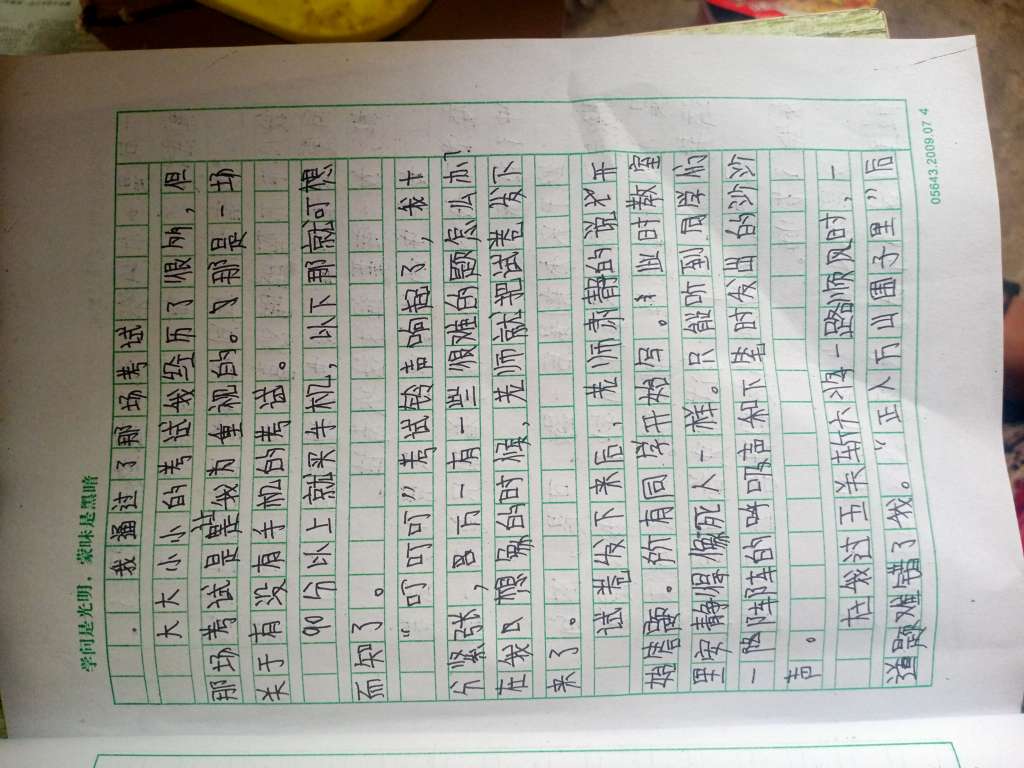 学问是光明，蒙昧是黑暗
我挺过了那场考试
大大小小的考试我经历了很多，但
那场考试是我为重视的。那是一场
关于有没有手机的考试。
90分以上就买手机，以下那就可想
而知了。
“叮叮叮”考试铃声响起了，我十
分紧张，万一有一些很难的题怎么办？
在我只想象的时候，老师就把试卷发下
来了。
试卷发下来后，老师肃静的说开
始答题。所有同学开始写。此时教室
里安静得像死人一样。只能听到同学们
一阵阵的呼吸声和下笔时发出的沙沙
声。
在我过五关斩六将一路顺风时，一
道题难错了我。“正人万山圈子里”后
05643.2009.07 4